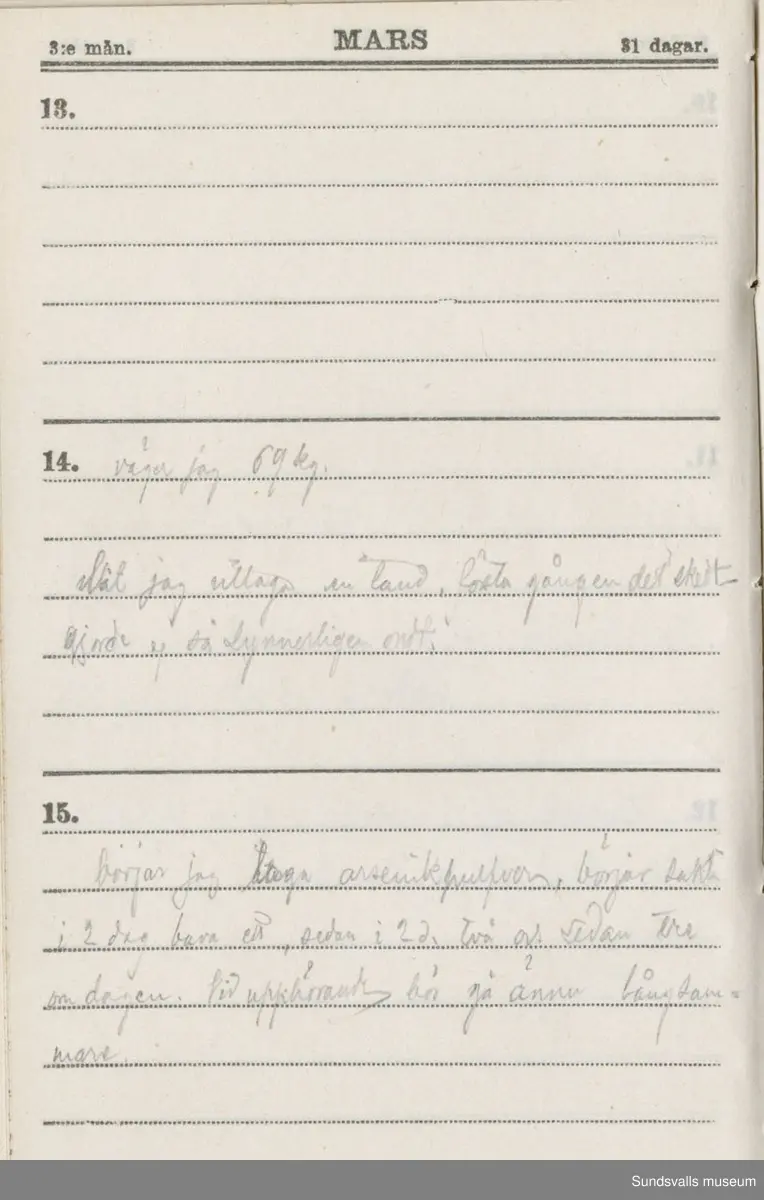 3:e mån. MARS 31 dagar.
13.
14. väger jag 69 kg.
jag uttaga en tand, gången det skett
gjorde ej så synnerligen ondt.
15.
börjar jag taga arsenikpulver, börjar sakta
i 2 dag bara ett, sedan i 2 d. två och sedan tre
om dagen. Vid upphörandet bör gå ännu långsam=
mare.
Sundsvalls museum